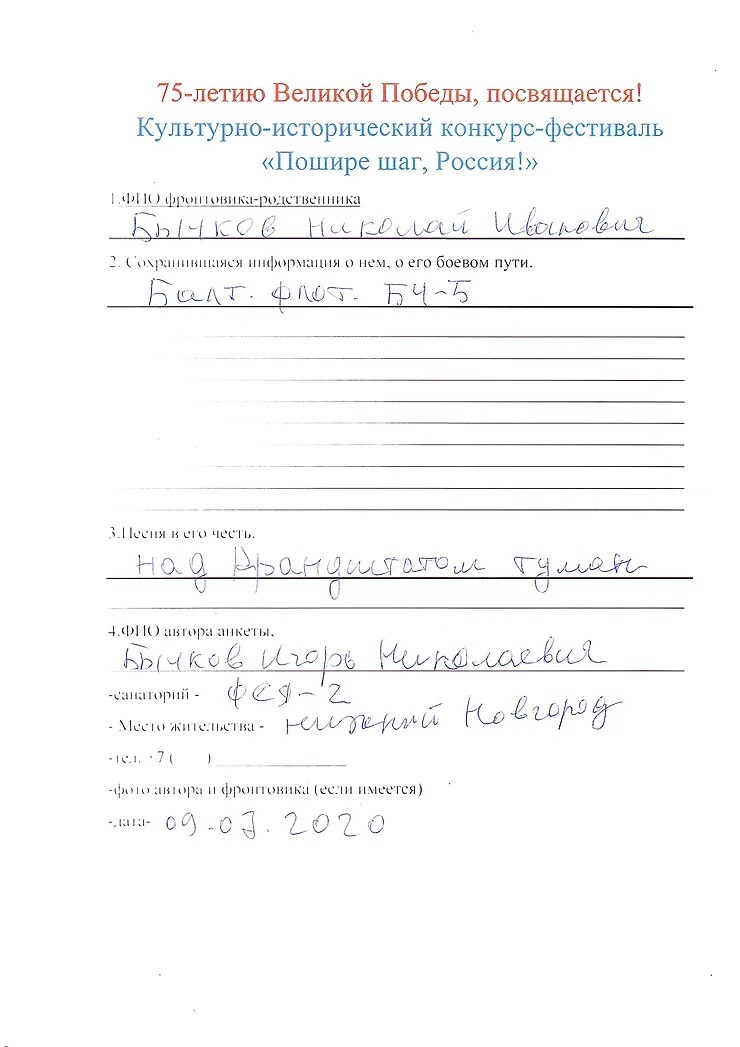 75-летию Великой Победы, посвящается!
Культурно-исторический конкурс-фестиваль
«Пошире шаг, Россия!»
1.ФИО фронтовика-родственника
Бычков Николай Иванович
2. Сохранившаяся информация о нем, о его боевом пути.
Балт. флот. БЧ-5
3.Песня в его честь.
над Кранштатом туман
4.ФИО автора анкеты,
Бычков Игорь Николаевич
-санаторий -
- Место жительства - нижний Новгород
-тел. +7 ( )
-фото автора и фронтовика (если имеется)
-дата- 09.03.2020